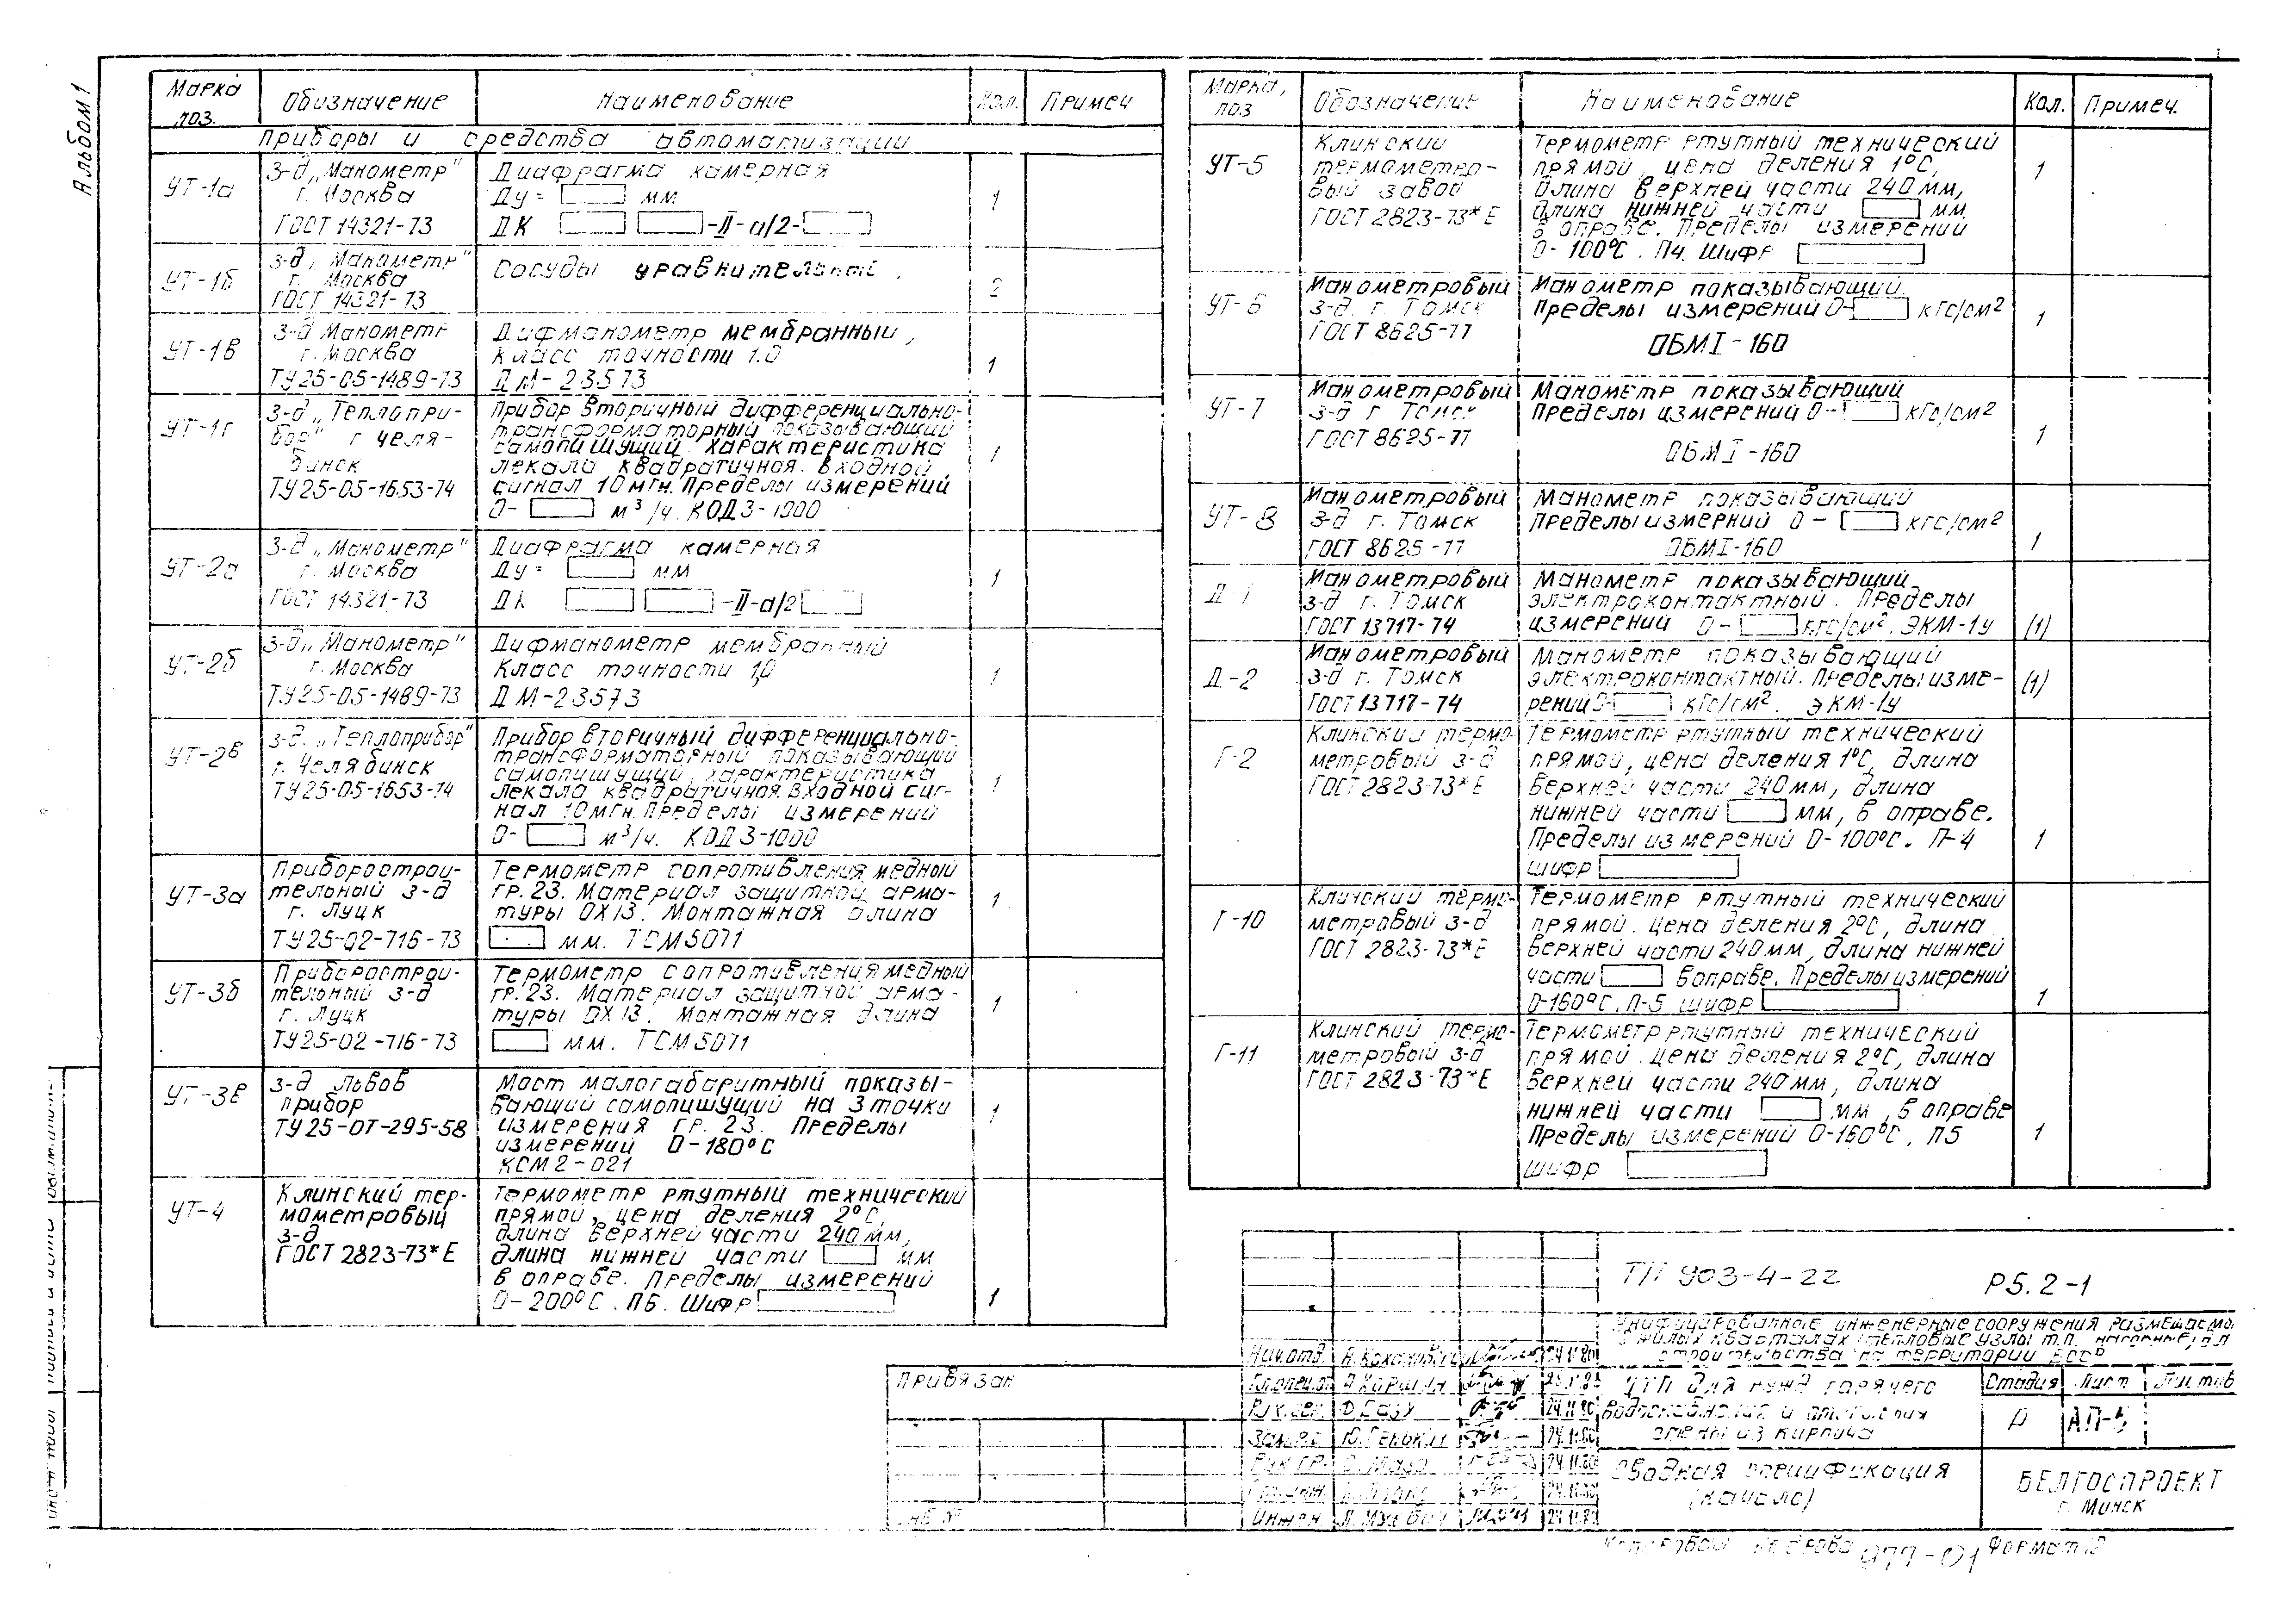 Альбом 1
Марка поз.
Обозначение
Наименование
Кол.
Примеч
Приборы и средства автоматизации
УТ-1а
З-д „Манометр"
г. Москва
ГОСТ 14321-73
Диафрагма камерная
Ду= мм
ДК -II-а/2-
1
УТ-1б
З-д „Манометр"
г. Москва
ГОСТ 14321-73
Сосуды уравнительные.
2
УТ-1в
З-д Манометр
г. Москва
ТУ25-05-1489-73
Дифманометр мембранный,
класс точности 1.0
ДМ-23573
1
УТ-1г
З-д „Теплопри-
бор" г. Челя-
бинск
ТУ25-05-1653-74
Прибор вторичный дифференциально-
трансформаторный показывающий
самопишущий характеристика
лекала квадратичная. Входной
сигнал 10мгн. Пределы измерений
0- м³/ч. КОД3-1000
1
УТ-2а
З-д „Манометр"
г. Москва
ГОСТ 14321-73
Диафрагма камерная
Ду= мм
ДК -II-а/2
1
УТ-2б
З-д „Манометр"
г. Москва
ТУ25-05-1489-73
Дифманометр мембранный
Класс точности 1,0
ДМ-23573
1
УТ-2в
З-д. „Теплоприбор"
г. Челябинск
ТУ25-05-1653-74
Прибор вторичный дифференциально-
трансформаторный показывающий
самопишущий, характеристика
лекала квадратичная. Входной сиг-
нал 10мгн. Пределы измерений
0- м³/ч. КОД3-1000
1
УТ-3а
Приборострои-
тельный з-д
г. Луцк
ТУ25-02-716-73
Термометр сопротивления медный
гр. 23. Материал защитной арма-
туры 0Х13. Монтажная длина
мм. ТСМ5071
1
УТ-3б
Приборострои-
тельный з-д
г. Луцк
ТУ25-02-716-73
Термометр сопротивления медный
гр. 23. Материал защитной арма-
туры 0Х13. Монтажная длина
мм. ТСМ5071
1
УТ-3в
З-д Львов
прибор
ТУ25-ОТ-295-58
Мост малогабаритный показы-
вающий самопишущий на 3 точки
измерения гр. 23. Пределы
измерений 0-180°С
КСМ2-021
1
УТ-4
Клинский тер-
мометровый
з-д
ГОСТ 2823-73*Е
Термометр ртутный технический
прямой, цена деления 2°С,
длина верхней части 240мм,
длина нижней части мм
в оправе. Пределы измерений
0-200°С. П6. Шифр
1
Марка, поз
Обозначение
Наименование
Кол.
Примеч.
УТ-5
Клинский
термометро-
вый завод
ГОСТ 2823-73*Е
Термометр ртутный технический
прямой, цена деления 1°С,
длина верхней части 240мм,
длина нижней части мм
в оправе. Пределы измерений
0-100°С. П4. Шифр
1
УТ-6
Манометровый
з-д. г. Томск
ГОСТ 8625-77
Манометр показывающий.
Пределы измерений 0- кгс/см²
ОБМ1-160
1
УТ-7
Манометровый
з-д г Томск
ГОСТ 8625-77
Манометр показывающий
Пределы измерений 0- кгс/см²
ОБМ1-160
1
УТ-8
Манометровый
з-д г. Томск
ГОСТ 8625-77
Манометр показывающий
Пределы измерний 0- кгс/см²
ОБМ1-160
1
Д-1
Манометровый
з-д г. Томск
ГОСТ 13717-74
Манометр показывающий
электроконтактный. Пределы
измерений 0- кгс/см². ЭКМ-1У
(1)
Д-2
Манометровый
з-д г. Томск
ГОСТ 13717-74
Манометр показывающий
электроконтактный. Пределы изме-
рений 0- кгс/см². ЭКМ-1У
(1)
Г-2
Клинский термо-
метровый з-д
ГОСТ 2823-73*Е
Термометр ртутный технический
прямой, цена деления 1°С, длина
верхней части 240мм, длина
нижней части мм, в оправе.
Пределы измерений 0-100°С. П-4
шифр
1
Г-10
Клинский термо-
метровый з-д
ГОСТ 2823-73*Е
Термометр ртутный технический
прямой. цена деления 2°С, длина
верхней части 240мм, длина нижней
части в оправе. Пределы измерений
0-160°С. П-5 шифр
1
Г-11
Клинский термо-
метровый з-д
ГОСТ 2823-73*Е
Термометр ртутный технический
прямой. цена деления 2°С, длина
верхней части 240мм, длина
нижней части мм, в оправе
Пределы измерений 0-160°С, П5
шифр
1
Привязан
Инв №
ТП 903-4-22
Р5.2-1
Унифицированные инженерные сооружения размещаемые
в жилых кварталах (тепловые узлы т.п. насосные) для
строительства на территории БССР
Нач.отд.
24.11.80
24.11.80
Рук.
24.11.80
Ю. Генькин
24.11.80
Рук гр.
24.11.80
24.11.80
Инжен
24.11.80
ЦТП для нужд горячего
водоснабжения и отопления
стены из кирпича
Стадия
Лист
Листов
Р
АП-5
Сводная спецификация
(начало)
БЕЛГОСПРОЕКТ
г. Минск
Копировал
977-01
Формат 12